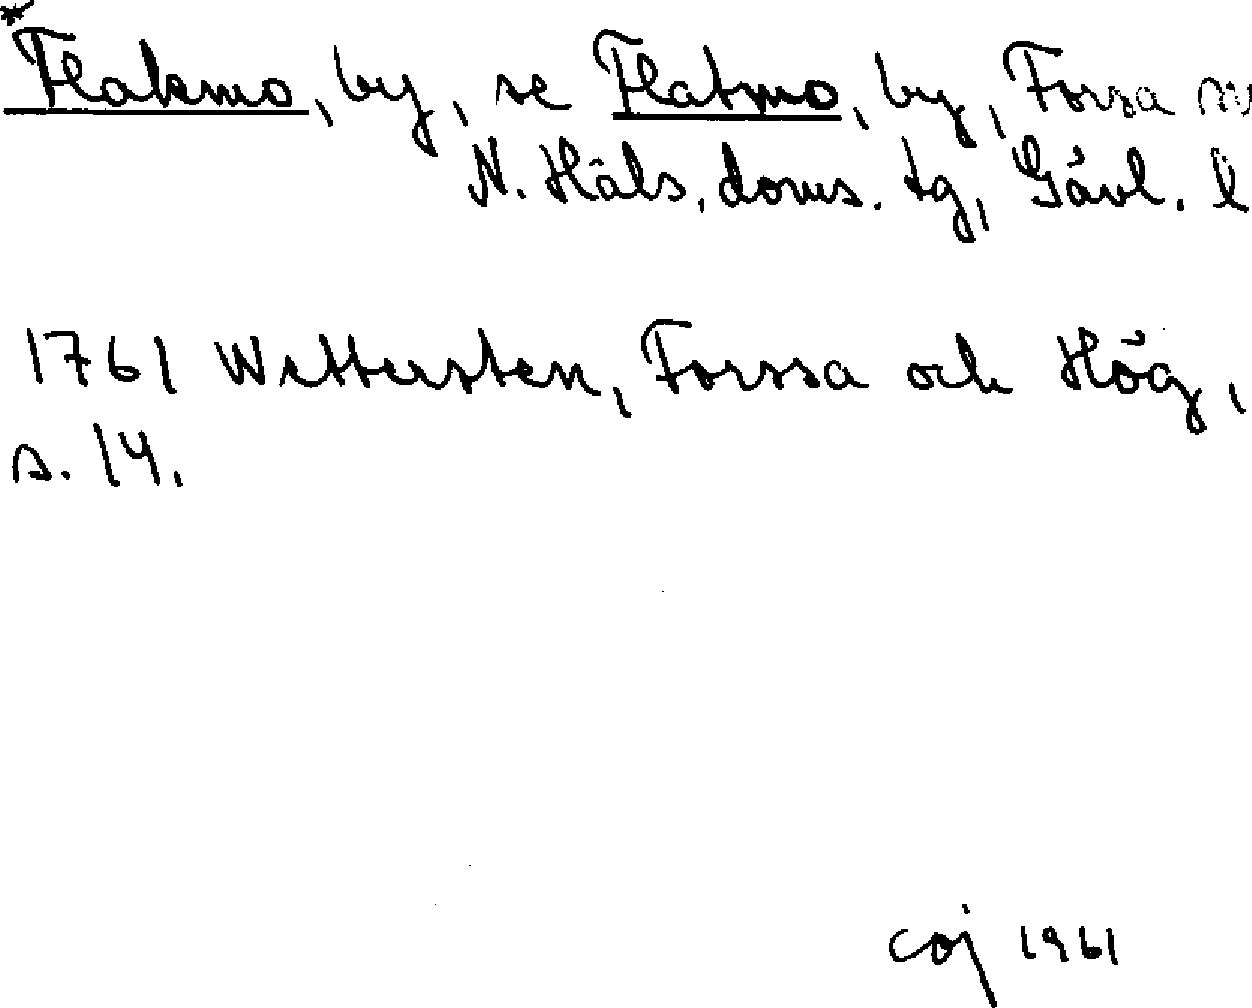 *Flakmo, by, se Flatmo, by, Forsa
N. Häls. doms. tg, Gävl. l
1761 Wettersten, Forssa och Hög,
s. 14.
coj 1961